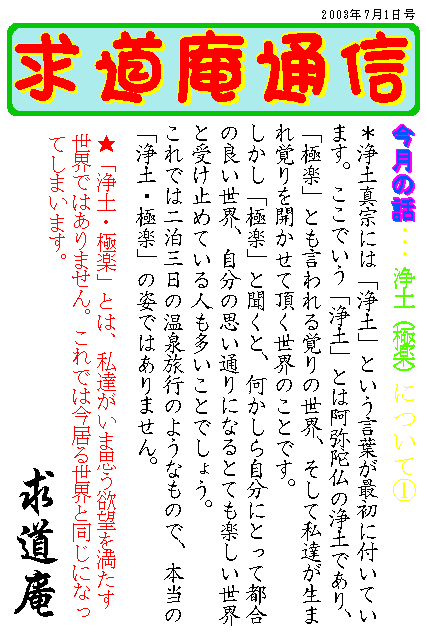 2003年7月1日号
求道庵通信
今月の話・・・浄土（極楽）について①
＊浄土真宗には「浄土」という言葉が最初に付いてい
ます。ここでいう「浄土」とは阿弥陀仏の浄土であり、
「極楽」とも言われる覚りの世界、そして私達が生ま
れ覚りを開かせて頂く世界のことです。
しかし「極楽」と聞くと、何かしら自分にとって都合
の良い世界、自分の思い通りになるとても楽しい世界
と受け止めている人も多いことでしょう。
これでは二泊三日の温泉旅行のようなもので、本当の
「浄土・極楽」の姿ではありません。
★「浄土・極楽」とは、私達がいま思う欲望を満たす
世界ではありません。これでは今居る世界と同じになっ
てしまいます。
求道庵